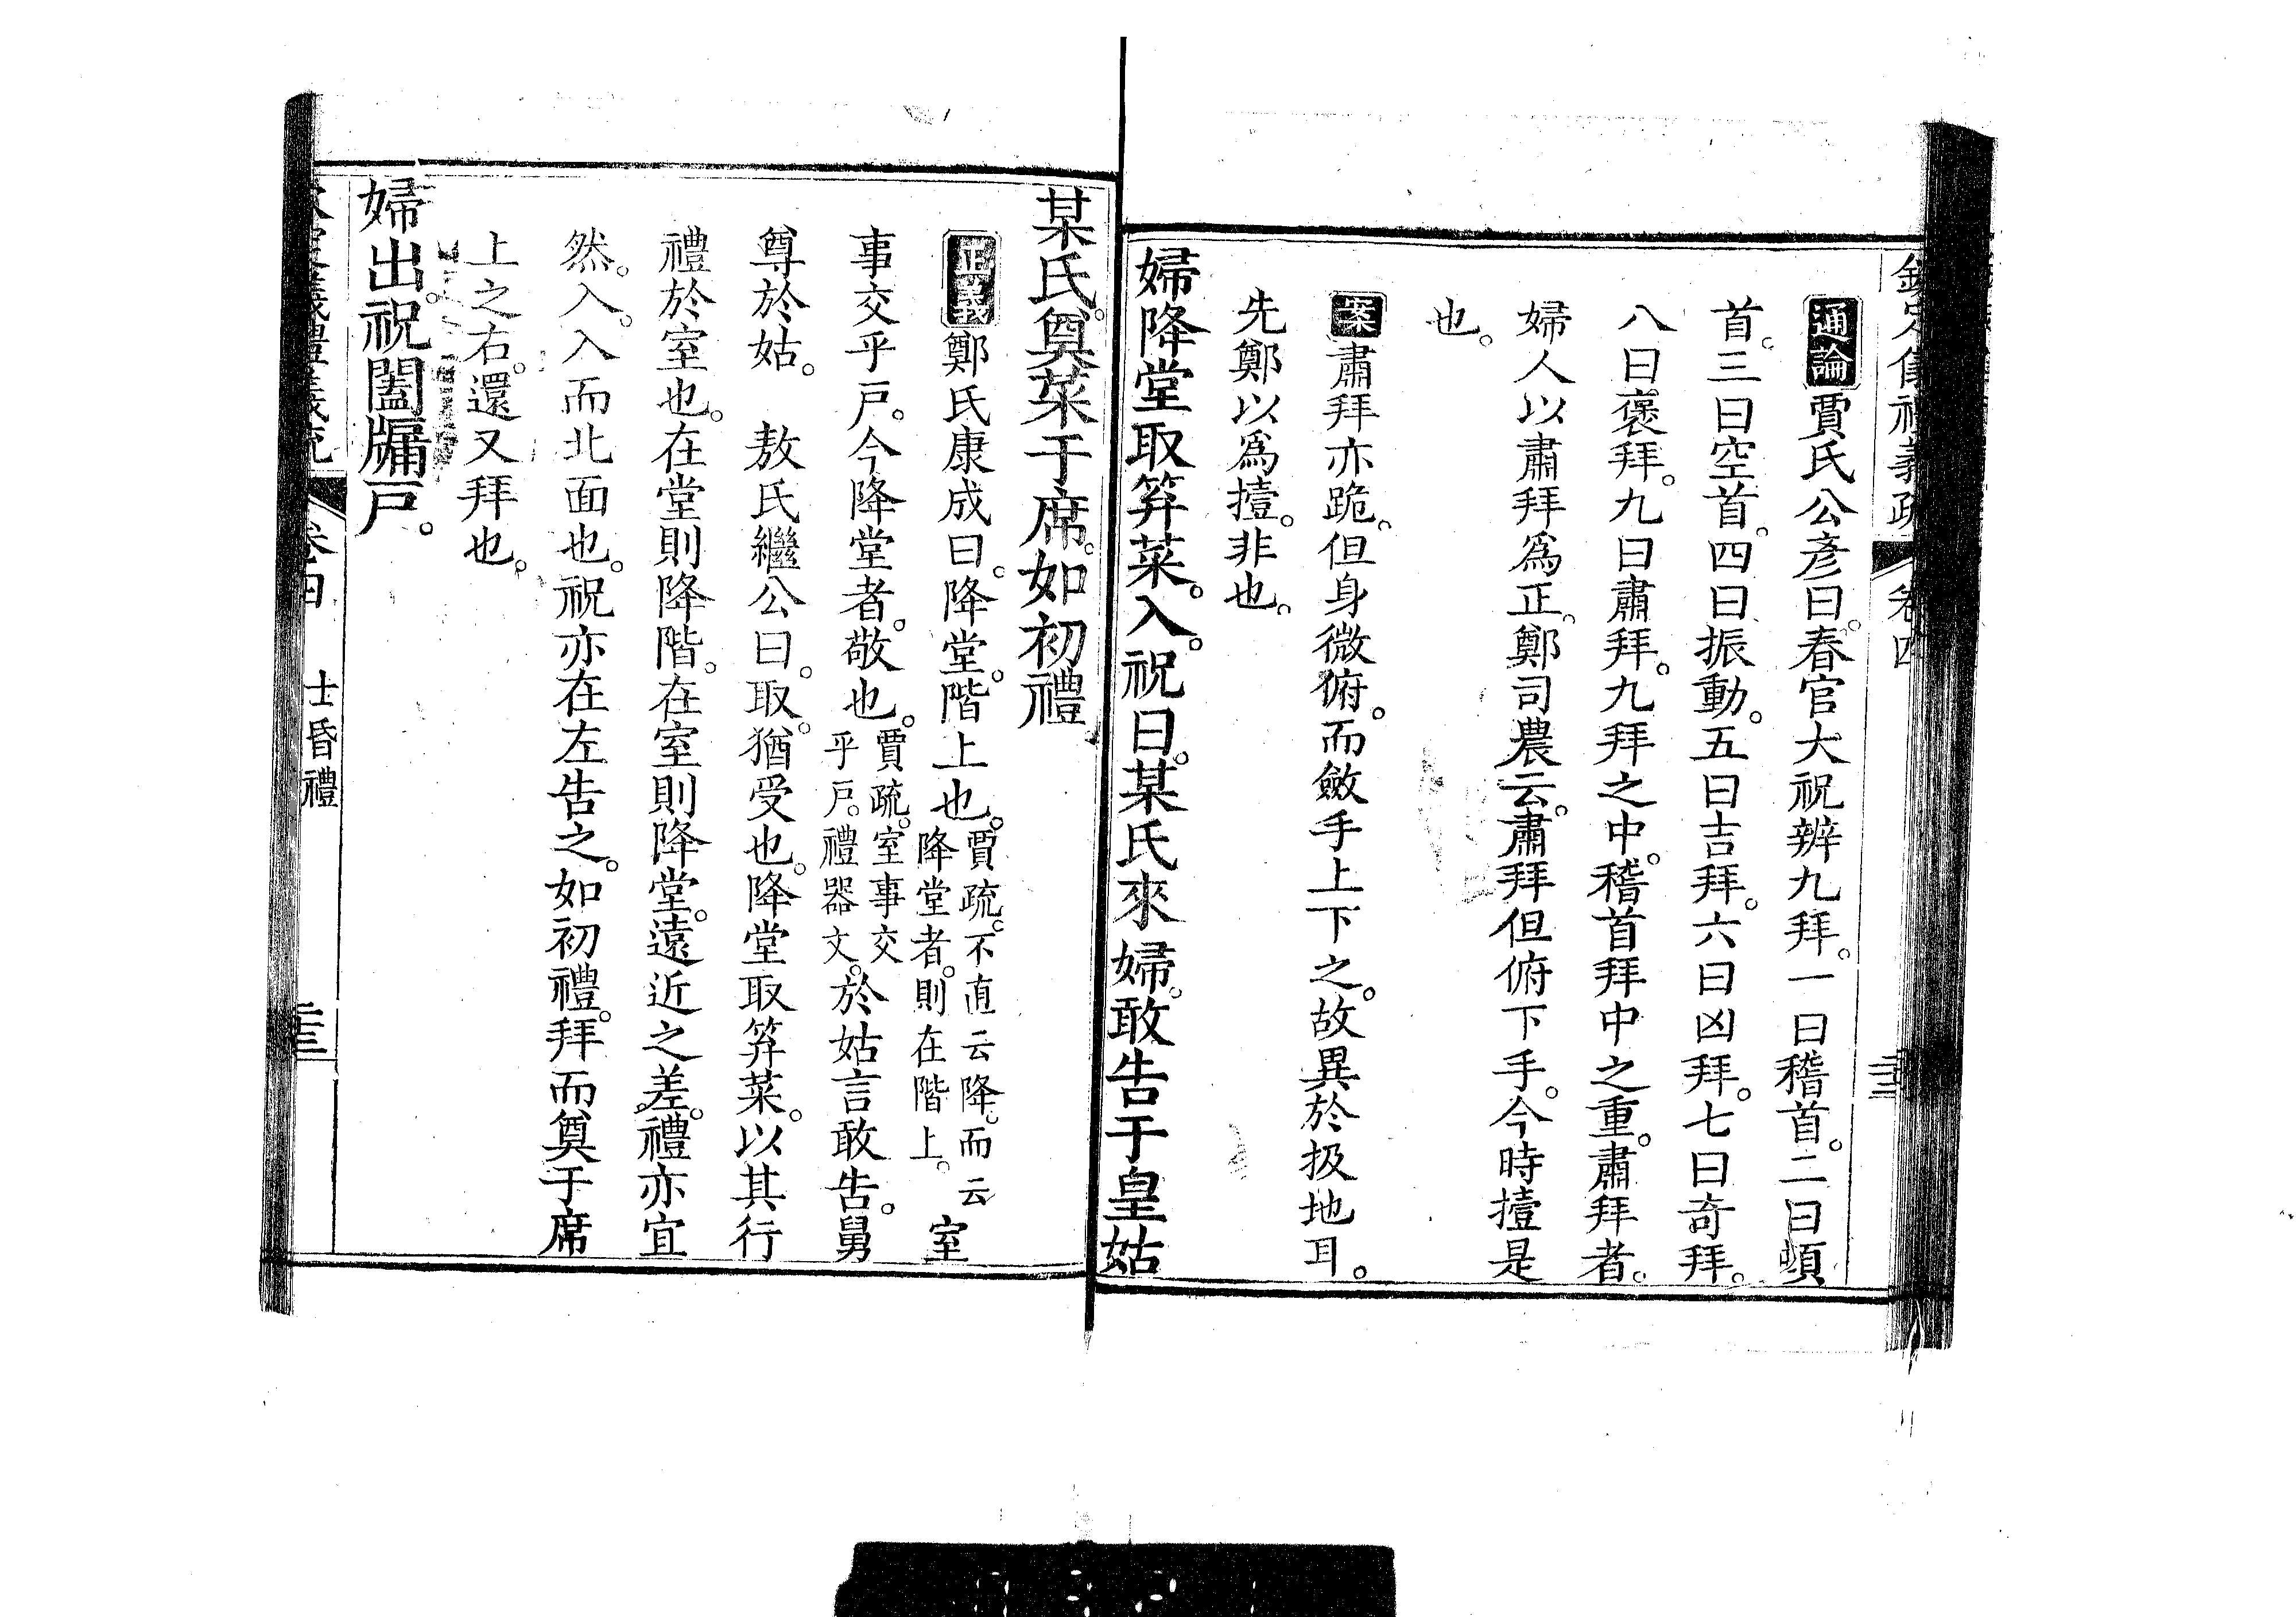 欽定儀禮義疏 卷四
通論賈氏公彥曰。春官大祝辨九拜。一曰稽首。二曰頓
首。三曰空首。四曰振動。五曰吉拜。六曰凶拜。七曰奇拜。
八曰褒拜。九曰肅拜。九拜之中。稽首拜中之重。肅拜者。
婦人以肅拜爲正。鄭司農云。肅拜但俯下手。今時撎是
也。
案肅拜亦跪。但身微俯。而斂手上下之。故異於扱地耳。
先鄭以爲撎。非也。
婦降堂取笲菜。入。祝曰。某氏來婦。敢告于皇姑
某氏。奠菜于席。如初禮
正義鄭氏康成曰。降堂。階上也。賈疏。不直云降。而云降堂者。則在階上。室
事交乎戶。今降堂者。敬也。賈疏。室事交乎戶。禮器文。於姑言敢告。舅
尊於姑。 敖氏繼公曰。取。猶受也。降堂取笲菜。以其行
禮於室也。在堂則降階。在室則降堂。遠近之差。禮亦宜
然。入。入而北面也。祝亦在左告之。如初禮。拜而奠于席
上之右。還又拜也。
婦出。祝闔牖戶。
欽定儀禮義疏 卷四 士昏禮